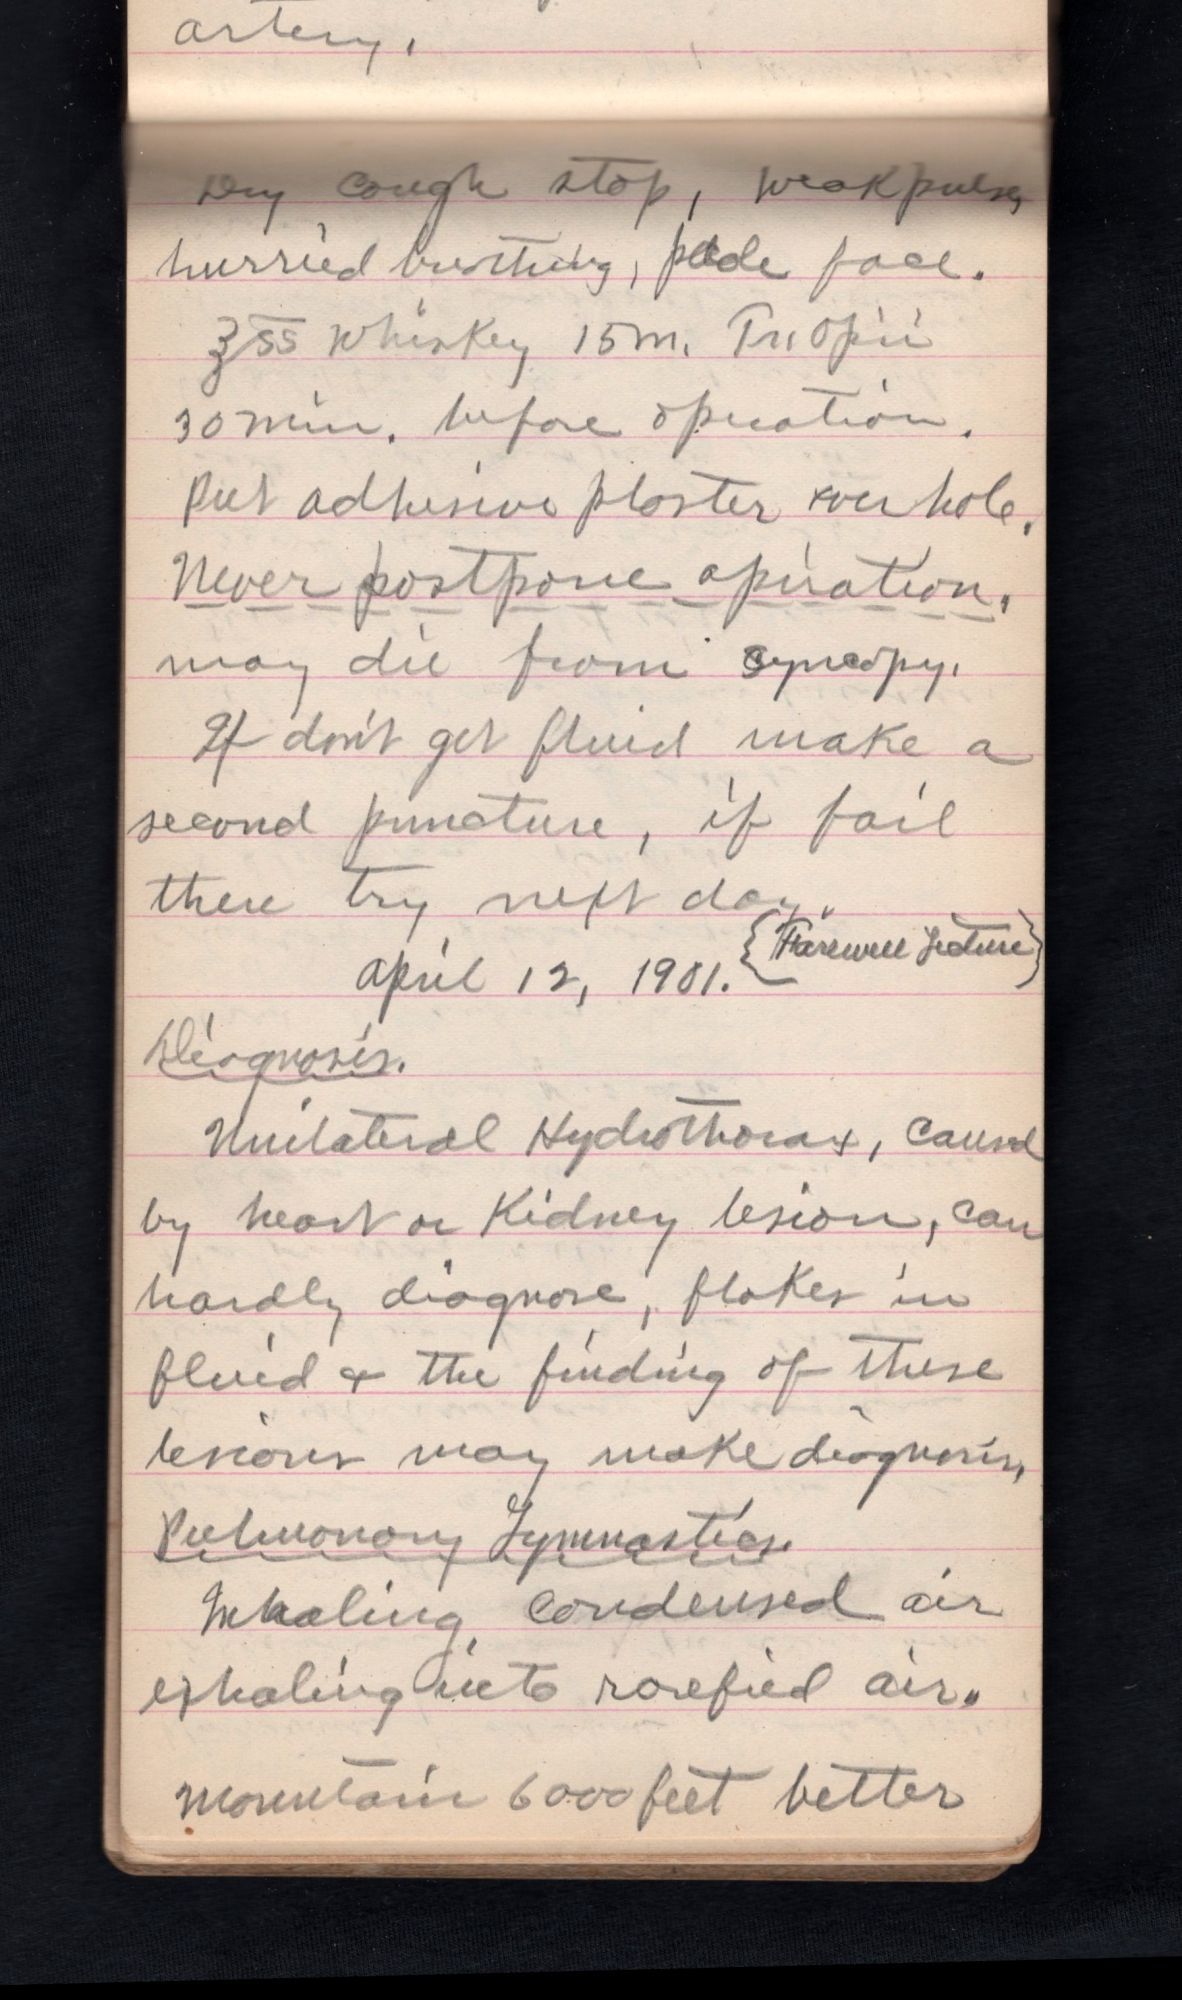 artery.
Dry cough stop, weak pulse,
hurried breathing, pale face.
℥ss Whiskey 15 m. Tr. Opii
30 min. before operation.
Put adhesive plaster over hole.
Never postpone apiration.
may die from syncopy.
If don't get fluid make a
second puncture, if fail
there try next day.
April 12, 1901. {Farewell Lecture}
Diagnosis.
Unilateral Hydrothorax, caused
by heart or Kidney lesion, can
hardly diagnose, flakes in
fluid & the finding of these
lesions may make diagnosis.
Pulmonary Gymnastics.
Inhaling condensed air
exhaling into rarefied air.
Mountain 6000 feet better